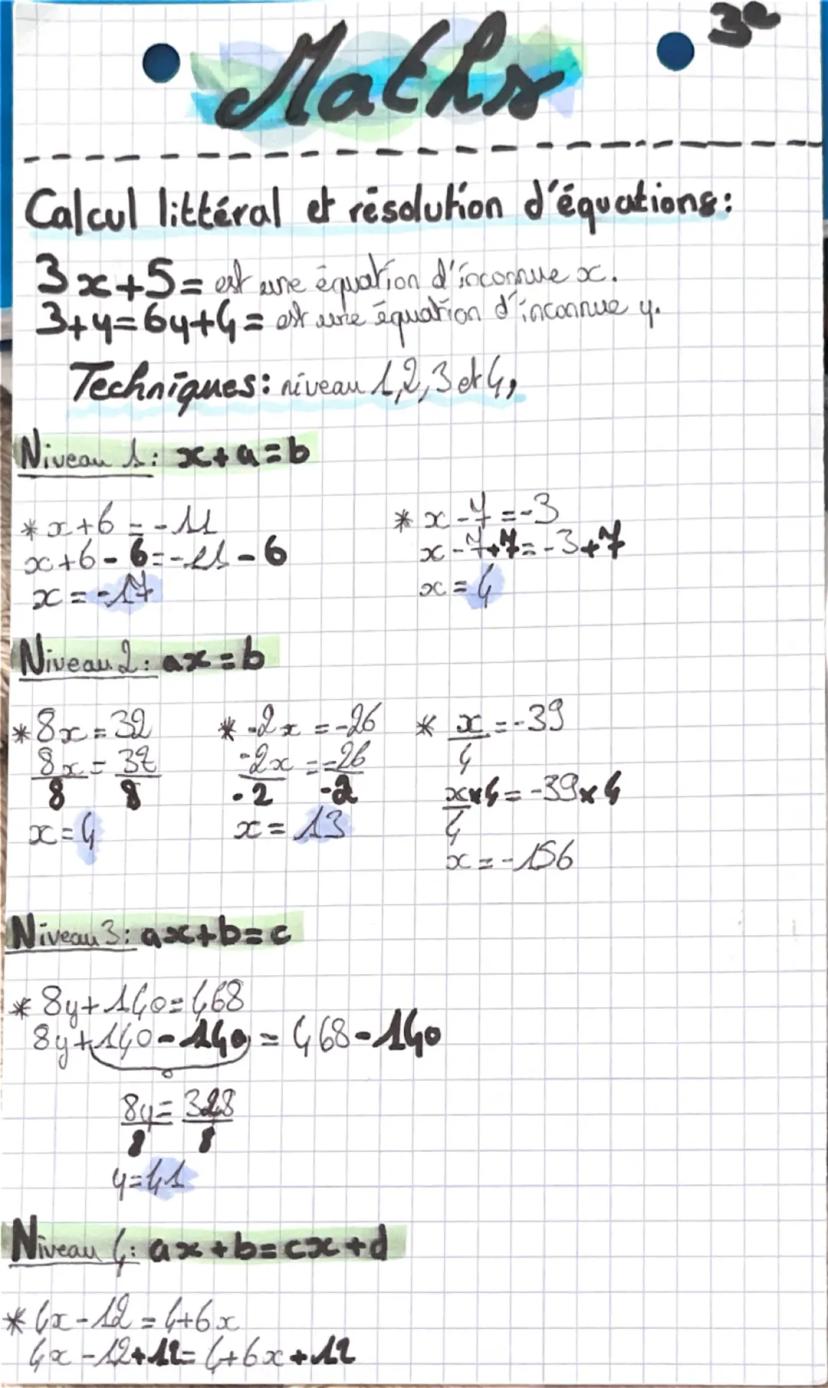 3e
Maths
Calcul littéral et résolution d'équations:
3x+5= est une équation d'inconnue x.
3+y=6y+4= est une équation d'inconnue y.
Techniques: niveau 1,2,3 et 4,
Niveau 1: x+a=b
* x+6 = -11
x+6-6=-11-6
x = -17
* x-7=-3
x-7+7=-3+7
x=4
Niveau 2: ax=b
* 8x=32
8x/8 = 32/8
x=4
* -2x = -26
-2x/-2 = -26/-2
x= 13
* x/4 = -39
x×4/4 = -39×4
x=-156
Niveau 3: ax+b=c
* 8y+140=468
8y+140-140 = 468-140
0
8y/8 = 328/8
y=41
Niveau 4: ax+b=cx+d
* 4x-12=4+6x
4x-12+12=4+6x+12